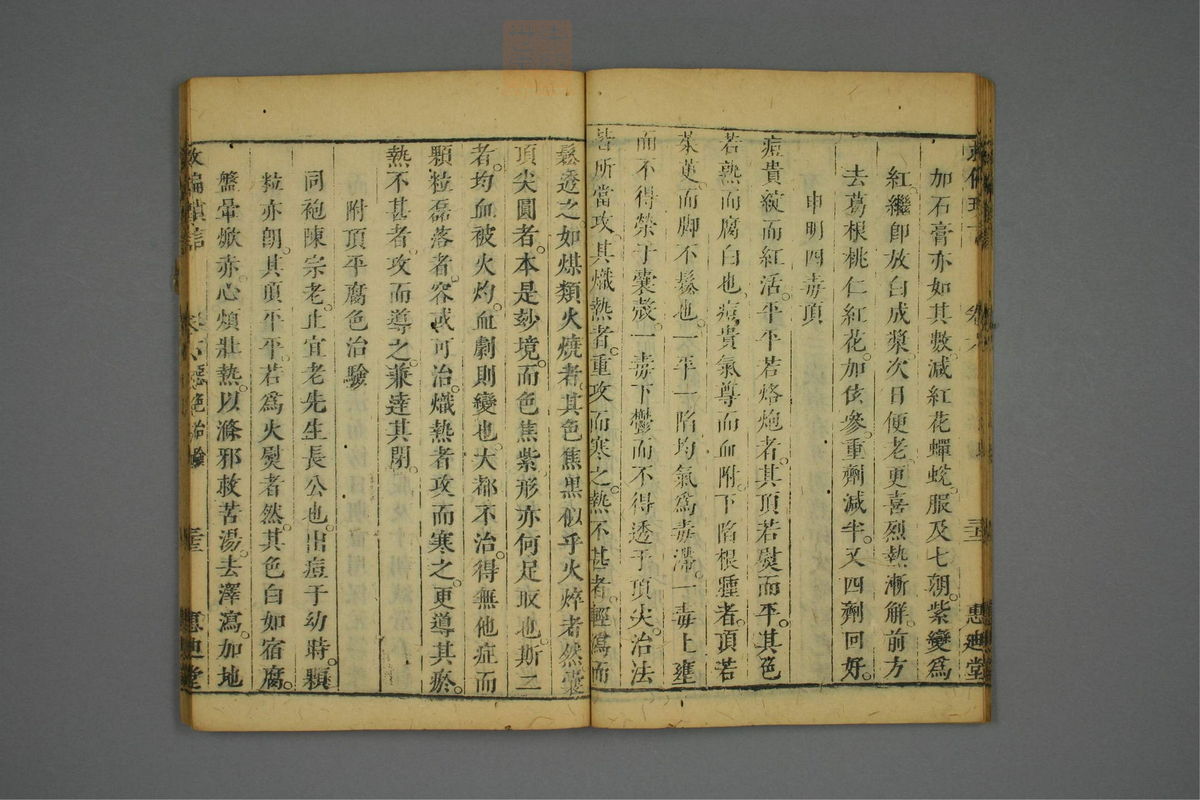 加石膏亦如其數。減紅花蟬蛻。服及七朔。紫變爲
紅。繼卽放白成漿。次日便老。更喜烈熱漸解。前方
去葛根桃仁紅花。加伭參。重劑減半。又四劑回好。
申明四毒頂
痘貴綻而紅活。平平若烙炮者。其頂若熨而平。其色
若熟而腐白也。痘貴氣尊而血附。下陷根腫者。頂若
茱萸。而脚不鬆也。一平一陷均氣爲毒滯。一毒上壅
而不得榮于囊殼。一毒下鬱而不得透于頂尖。治法
皆所當攻。其熾熱者。重攻而寒之。熱不甚者。輕爲而
鬆透之如煤類火燒者。其色焦黑似乎火焠者然囊
頂尖圓者。本是玅境。而色焦紫形亦何足取也。斯二
者。均血被火灼。血劇則變也。大都不治。得無他症而
顆粒磊落者。容或可治。熾熱者攻而寒之。更導其瘀。
熱不甚者。攻而導之。兼達其閉。
附頂平腐色治驗
同袍陳宗老。止宜老先生長公也。出痘于幼時。顆
粒亦朗。其頂平平。若爲火熨者然。其色白如宿腐。
盤暈焮赤。心煩壯熱。以滌邪救苦湯。去澤瀉。加地
卷六
惠迪堂
惠迪堂